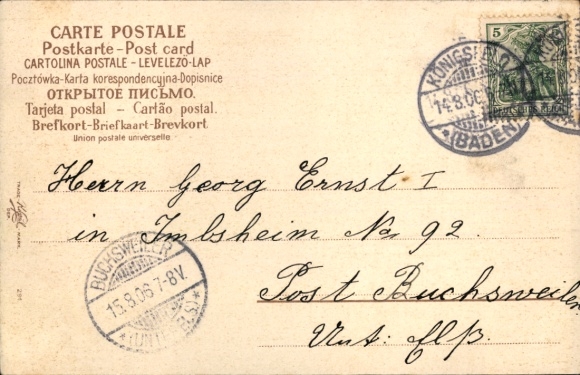 CARTE POSTALE
Postkarte – Post card
CARTOLINA POSTALE – LEVELEZŐ-LAP
Pocztówka-Karta korespondencyjna-Dopisnice
ОТКРЫТОЕ ПИСЬМО.
Tarjeta postal – Cartão postal.
Brefkort-Briefkaart-Brevkort
Union postale universelle
5
DEUTSCHES REICH
KÖNIGSFELD
14.8.06
*(BADEN)
Herrn Georg Ernst I
in Imbsheim No 92.
Post Buchsweiler
Unt: Elß.
BUCHSWEILER
15.8.06 7-8V.
TRADE MARK